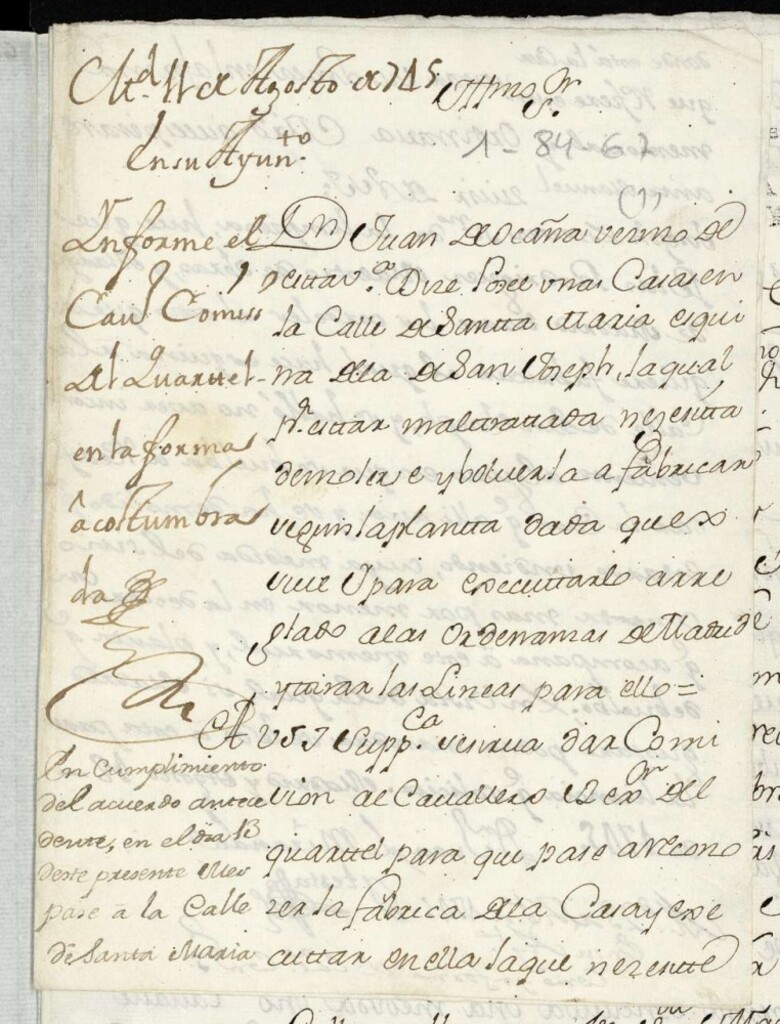 Md. 11 de Agosto de 745
En su Ayunto.
Ynforme el
Cavo Comisso
del Quartel
en la forma
acostumbra
da
Illmo Sr.
1-84-62
(1)
Dn Juan de Ocaña vezino de
esta va. Dize Posee unas Casas en
la Calle de Santta Maria esqui
na de la de San Joseph, la qual
pr. esttar malttrattada nezesitta
demolerse y bolverla a fabricar
segun la plantta dada que ex
sive Y para executtarlo arre
glado a las Ordenanzas de Madrid
y ttirar las Lineas para ello=
A VSI Suppca. se sirva dar Comi
sion al Cavallero Rexor del
quarttel para que pase a recono
zer la fabrica de la Casa y exe
cuttar en ella la que nezesitte
En Cumplimiento
del acuerdo antece
dente, en el dia 13
deste presente Mes
pase â la Calle
de Santa Maria